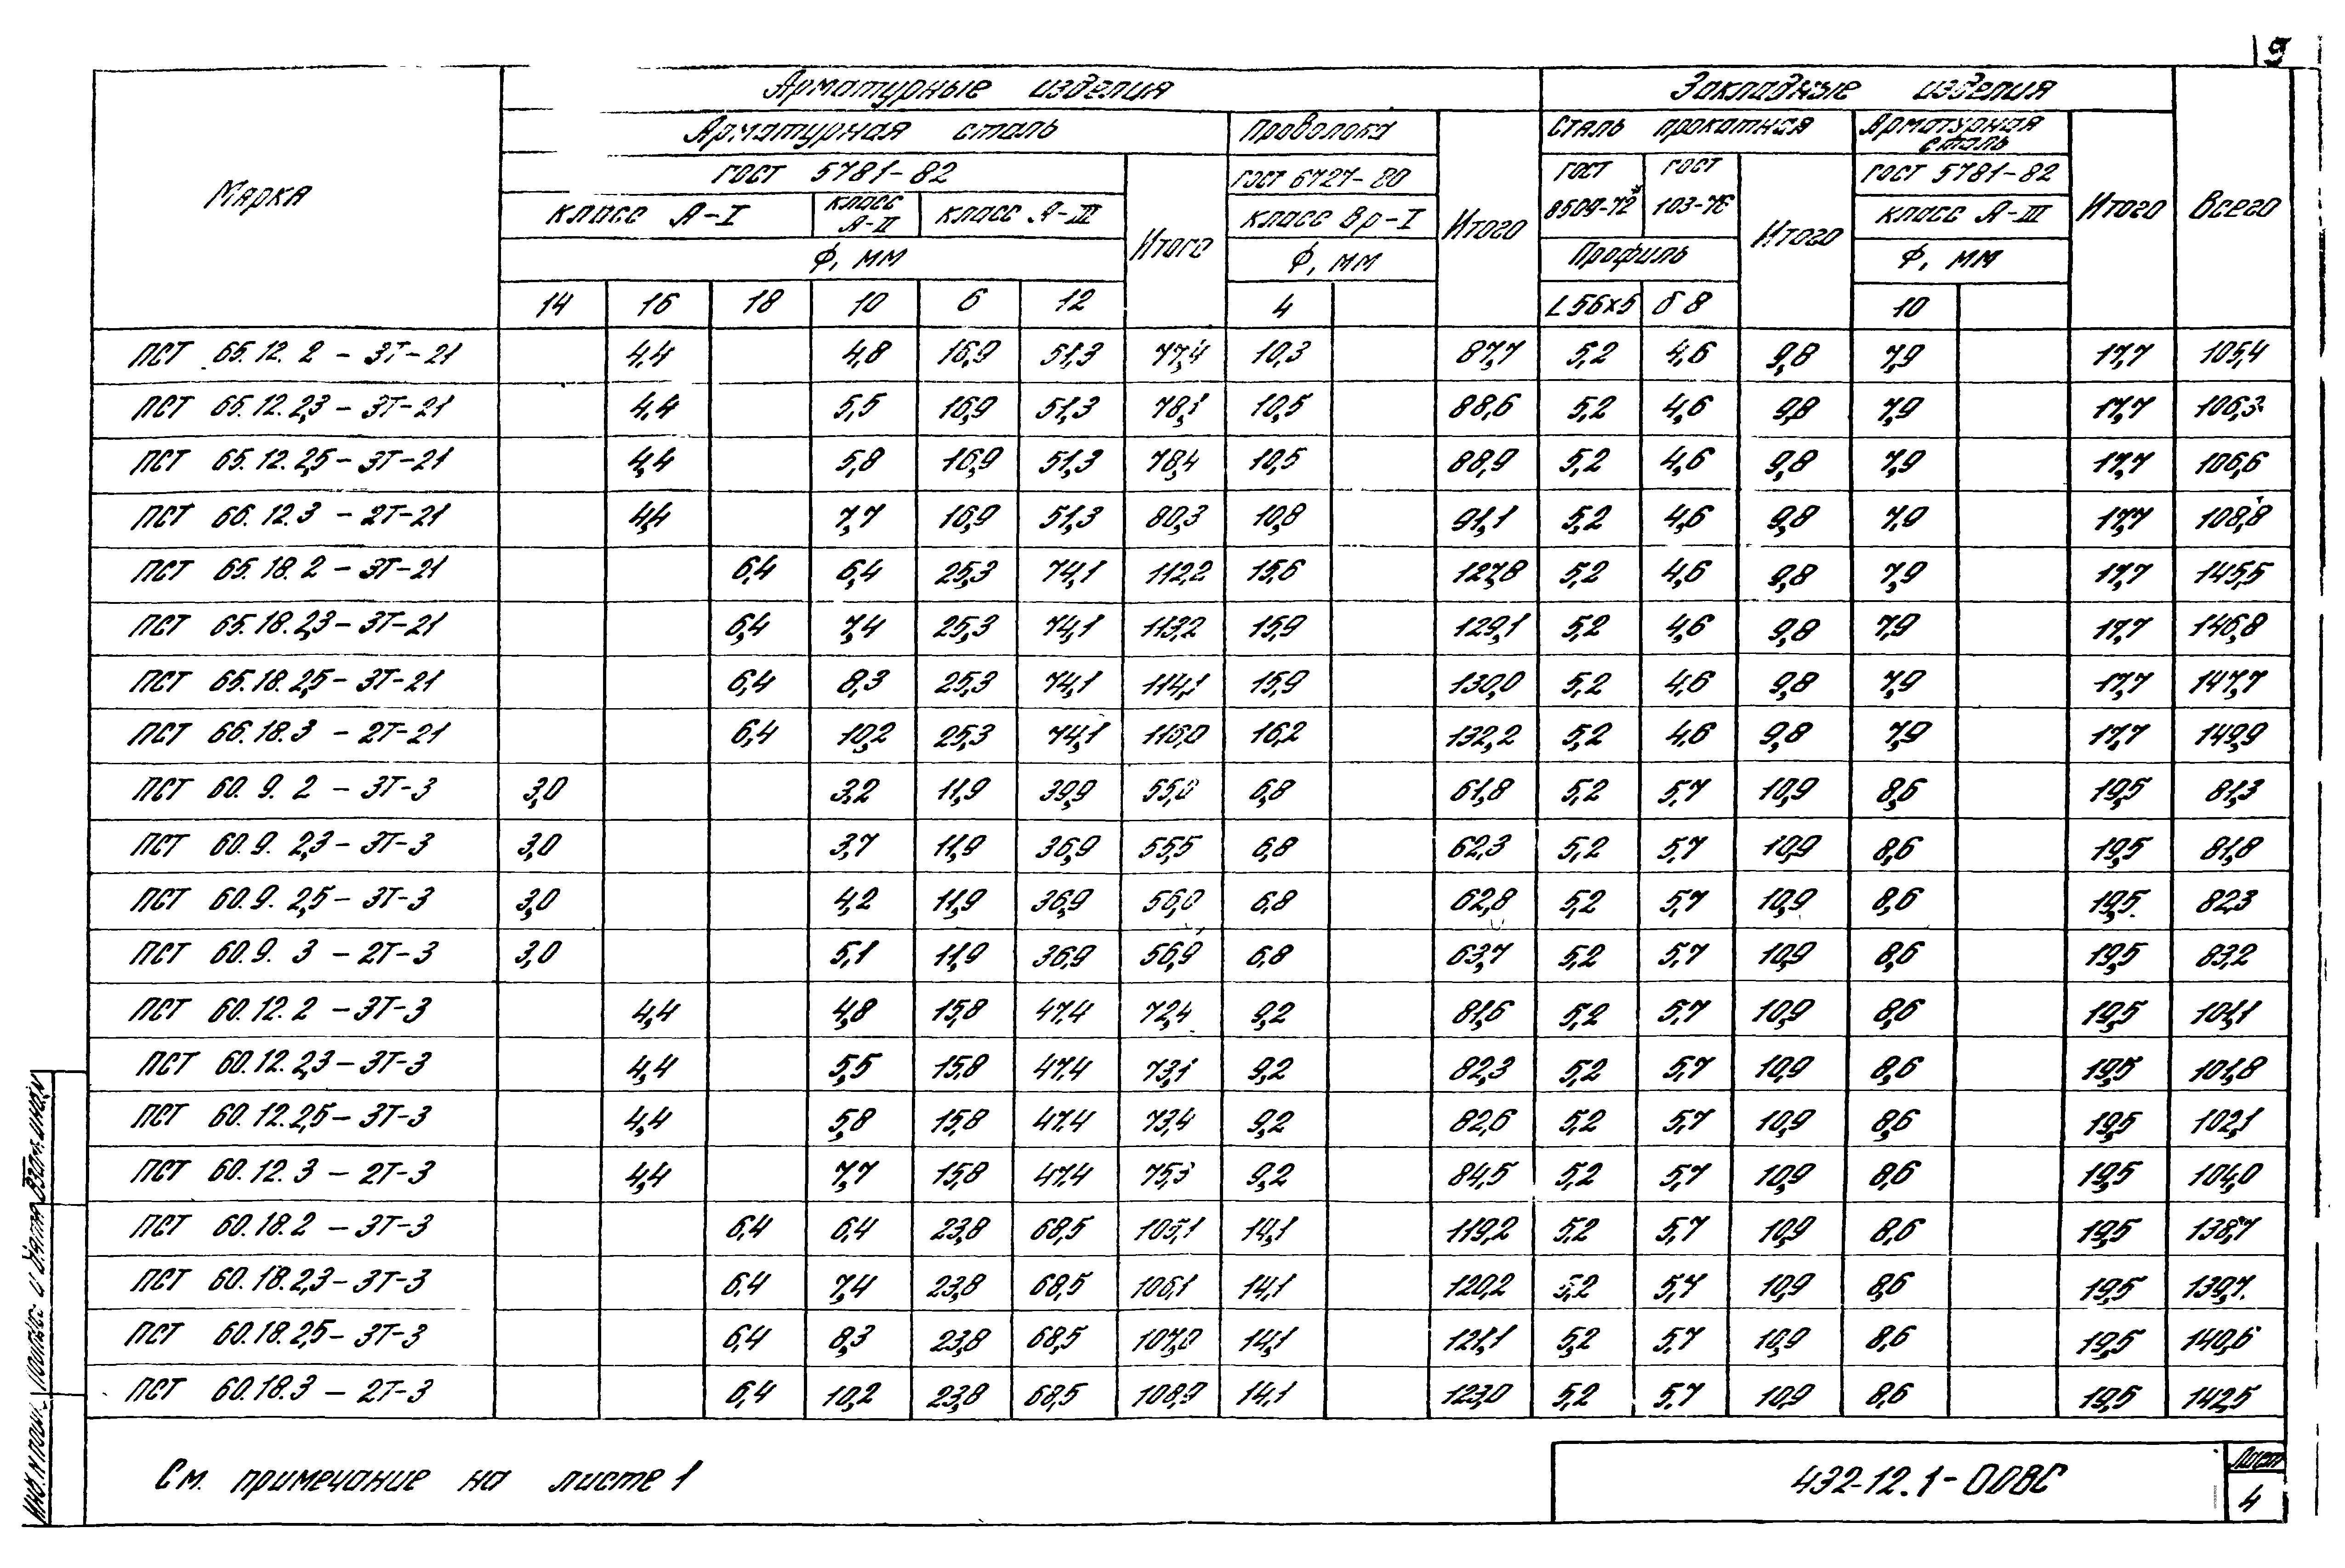 9
Марка
Арматурные изделия
Закладные изделия
Всего
Арматурная сталь
Проволока
Итого
Сталь прокатная
Арматурная сталь
Итого
ГОСТ 5781-82
Итого
ГОСТ 6727-80
ГОСТ 8509-72*
ГОСТ 103-76
Итого
ГОСТ 5781-82
класс А-I
класс А-II
класс А-III
класс Вр-I
класс А-III
Ф, мм
Ф, мм
Профиль
Ф, мм
14 16 18 10 6 12 4 L56x5 δ8 10
ПСТ 65.12.2 - 3Т-21 4,4 4,8 16,9 51,3 77,4 10,3 87,7 5,2 4,6 9,8 7,9 17,7 105,4
ПСТ 65.12.2,3 - 3Т-21 4,4 5,5 16,9 51,3 78,1 10,5 88,6 5,2 4,6 9,8 7,9 17,7 106,3
ПСТ 65.12.2,5 - 3Т-21 4,4 5,8 16,9 51,3 78,4 10,5 88,9 5,2 4,6 9,8 7,9 17,7 106,6
ПСТ 66.12.3 - 2Т-21 4,4 7,7 16,9 51,3 80,3 10,8 91,1 5,2 4,6 9,8 7,9 17,7 108,8
ПСТ 65.18.2 - 3Т-21 6,4 6,4 25,3 74,1 112,2 15,6 127,8 5,2 4,6 9,8 7,9 17,7 145,5
ПСТ 65.18.2,3 - 3Т-21 6,4 7,4 25,3 74,1 113,2 15,9 129,1 5,2 4,6 9,8 7,9 17,7 146,8
ПСТ 65.18.2,5 - 3Т-21 6,4 8,3 25,3 74,1 114,1 15,9 130,0 5,2 4,6 9,8 7,9 17,7 147,7
ПСТ 66.18.3 - 2Т-21 6,4 10,2 25,3 74,1 116,0 16,2 132,2 5,2 4,6 9,8 7,9 17,7 149,9
ПСТ 60.9.2 - 3Т-3 3,0 3,2 11,9 39,9 55,0 6,8 61,8 5,2 5,7 10,9 8,6 19,5 81,3
ПСТ 60.9.2,3 - 3Т-3 3,0 3,7 11,9 36,9 55,5 6,8 62,3 5,2 5,7 10,9 8,6 19,5 81,8
ПСТ 60.9.2,5 - 3Т-3 3,0 4,2 11,9 36,9 56,0 6,8 62,8 5,2 5,7 10,9 8,6 19,5 82,3
ПСТ 60.9.3 - 2Т-3 3,0 5,1 11,9 36,9 56,9 6,8 63,7 5,2 5,7 10,9 8,6 19,5 83,2
ПСТ 60.12.2 - 3Т-3 4,4 4,8 15,8 47,4 72,4 9,2 81,6 5,2 5,7 10,9 8,6 19,5 101,1
ПСТ 60.12.2,3 - 3Т-3 4,4 5,5 15,8 47,4 73,1 9,2 82,3 5,2 5,7 10,9 8,6 19,5 101,8
ПСТ 60.12.2,5 - 3Т-3 4,4 5,8 15,8 47,4 73,4 9,2 82,6 5,2 5,7 10,9 8,6 19,5 102,1
ПСТ 60.12.3 - 2Т-3 4,4 7,7 15,8 47,4 75,3 9,2 84,5 5,2 5,7 10,9 8,6 19,5 104,0
ПСТ 60.18.2 - 3Т-3 6,4 6,4 23,8 68,5 105,1 14,1 119,2 5,2 5,7 10,9 8,6 19,5 138,7
ПСТ 60.18.2,3 - 3Т-3 6,4 7,4 23,8 68,5 106,1 14,1 120,2 5,2 5,7 10,9 8,6 19,5 139,7
ПСТ 60.18.2,5 - 3Т-3 6,4 8,3 23,8 68,5 107,0 14,1 121,1 5,2 5,7 10,9 8,6 19,5 140,6
ПСТ 60.18.3 - 2Т-3 6,4 10,2 23,8 68,5 108,9 14,1 123,0 5,2 5,7 10,9 8,6 19,5 142,5
См. примечание на листе 1
432-12.1-00ВС
Лист
4
Инв.№подл. Подпись и дата Взам.инв.№